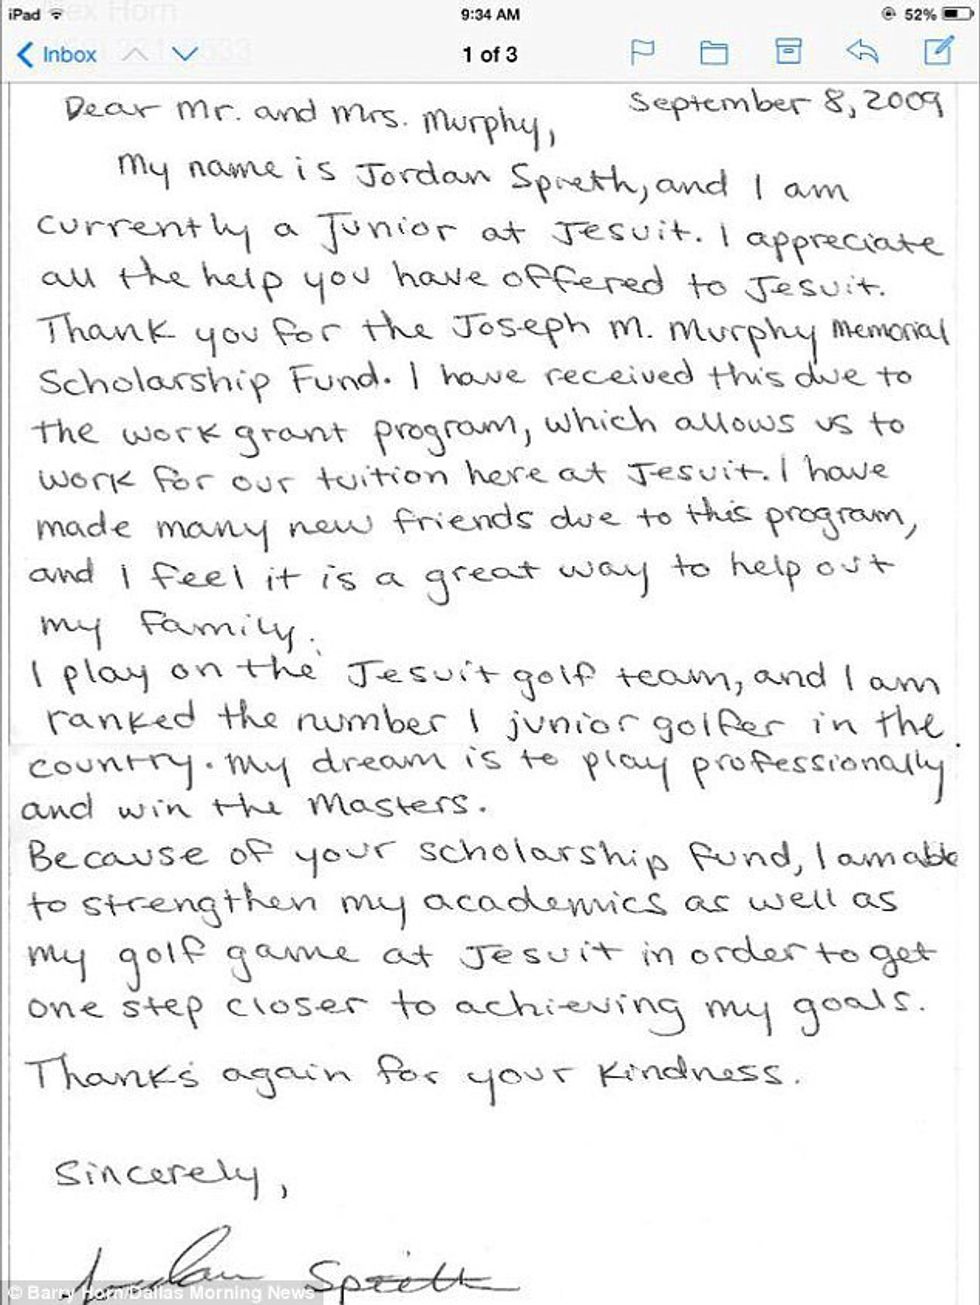 iPad 9:34 AM 52%
Inbox 1 of 3
September 8, 2009
Dear Mr. and Mrs. Murphy,
My name is Jordan Spieth, and I am
currently a Junior at Jesuit. I appreciate
all the help you have offered to Jesuit.
Thank you for the Joseph M. Murphy Memorial
Scholarship Fund. I have received this due to
the work grant program, which allows us to
work for our tuition here at Jesuit. I have
made many new friends due to this program,
and I feel it is a great way to help out
my family.
I play on the Jesuit golf team, and I am
ranked the number 1 junior golfer in the
country. My dream is to play professionally
and win the Masters.
Because of your scholarship fund, I am able
to strengthen my academics as well as
my golf game at Jesuit in order to get
one step closer to achieving my goals.
Thanks again for your kindness.
Sincerely,
Jordan Spieth
© Barry Horn/Dallas Morning News